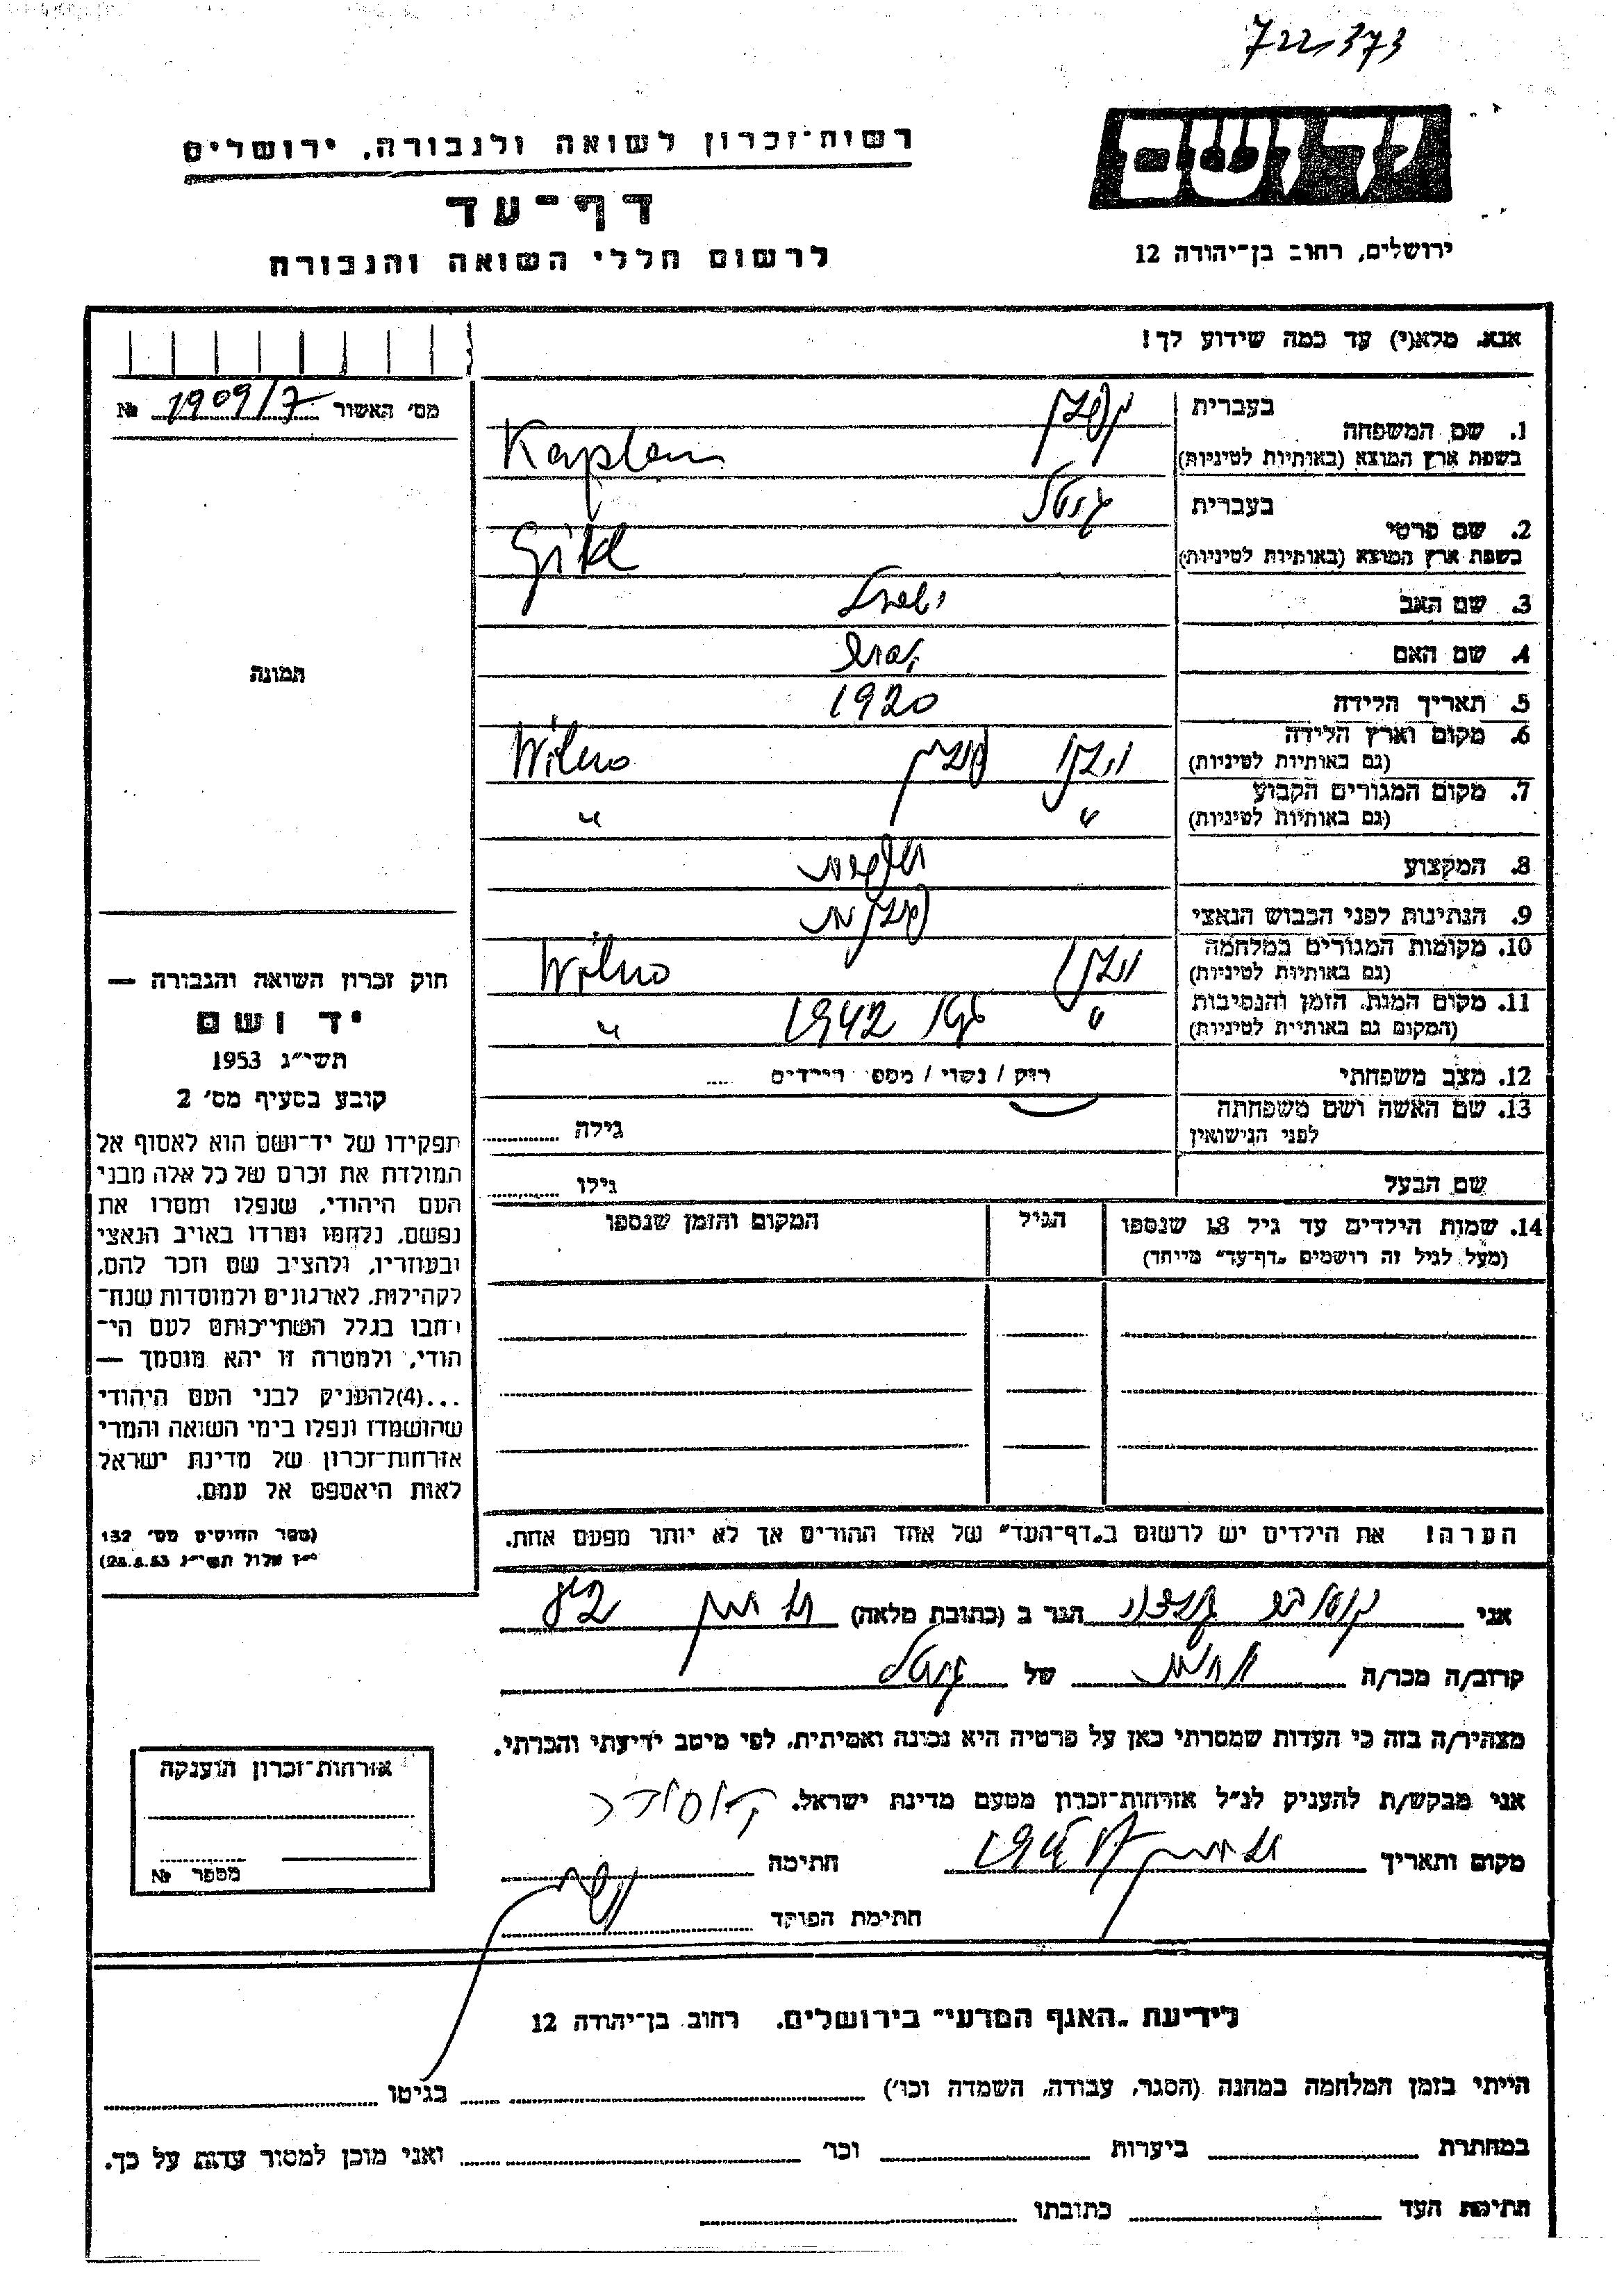 722373
יד ושם
ירושלים, רחוב בן־יהודה 12
רשות־זכרון לשואה ולגבורה, ירושלים
דף־עד
לרשום חללי השואה והגבורה
אנא, מלא(י) עד כמה שידוע לך!
מס׳ האשור 1909/7 №
תמונה
1. שם המשפחה
בעברית קפלן
בשפת ארץ המוצא (באותיות לטיניות) Kaplan
2. שם פרטי
בעברית גיטל
בשפת ארץ המוצא (באותיות לטיניות) Gitel
3. שם האב ישראל
4. שם האם
5. תאריך הלידה 1920
6. מקום וארץ הלידה
(גם באותיות לטיניות) וילנה פולין Wilno
7. מקום המגורים הקבוע
(גם באותיות לטיניות) " "
8. המקצוע
9. הנתינות לפני הכבוש הנאצי פולנית
10. מקומות המגורים במלחמה
(גם באותיות לטיניות) וילנה Wilno
11. מקום המות, הזמן והנסיבות
(המקום גם באותיות לטיניות) " 1942 "
12. מצב משפחתי רווק / נשוי / מספר הילדים
13. שם האשה ושם משפחתה
לפני הנישואין גילה
שם הבעל גילו
14. שמות הילדים עד גיל 18 שנספו
(מעל לגיל זה רושמים „דף־עד” מייחד)
הגיל
המקום והזמן שנספו
חוק זכרון השואה והגבורה —
יד ושם
תשי״ג 1953
קובע בסעיף מס׳ 2
תפקידו של יד־ושם הוא לאסוף אל
המולדת את זכרם של כל אלה מבני
העם היהודי, שנפלו ומסרו את
נפשם, נלחמו ומרדו באויב הנאצי
ובעוזריו, ולהציב שם וזכר להם,
לקהילות, לארגונים ולמוסדות שנח־
רבו בגלל השתייכותם לעם הי־
הודי, ולמטרה זו יהא מוסמך —
...(4)להעניק לבני העם היהודי
שהושמדו ונפלו בימי השואה והמרי
אזרחות־זכרון של מדינת ישראל
לאות היאספם אל עמם.
(ספר החוקים מס׳ 132
י״ז אלול תשי״ג 28.8.53)
הערה! את הילדים יש לרשום ב„דף־העד” של אחד ההורים אך לא יותר מפעם אחת.
אני הגר ב (כתובת מלאה)
קרוב/ה מכר/ה של גיטל
מצהיר/ה בזה כי העדות שמסרתי כאן על פרטיה היא נכונה ואמיתית, לפי מיטב ידיעתי והכרתי.
אני מבקש/ת להעניק לנ״ל אזרחות־זכרון מטעם מדינת ישראל.
מקום ותאריך חתימה
חתימת הפוקד
אזרחות־זכרון הוענקה
מספר №
לידיעת „האגף המדעי” בירושלים, רחוב בן־יהודה 12
הייתי בזמן המלחמה במחנה (הסגר, עבודה, השמדה וכו׳) בגיטו
במחתרת ביערות וכו׳ ואני מוכן למסור עדות על כך.
חתימת העד כתובתו